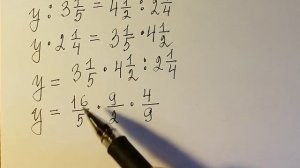 y : 3 1/5 = 4 1/2 : 2 1/4
y · 2 1/4 = 3 1/5 · 4 1/2
y = 3 1/5 · 4 1/2 : 2 1/4
y = 16/5 · 9/2 · 4/9